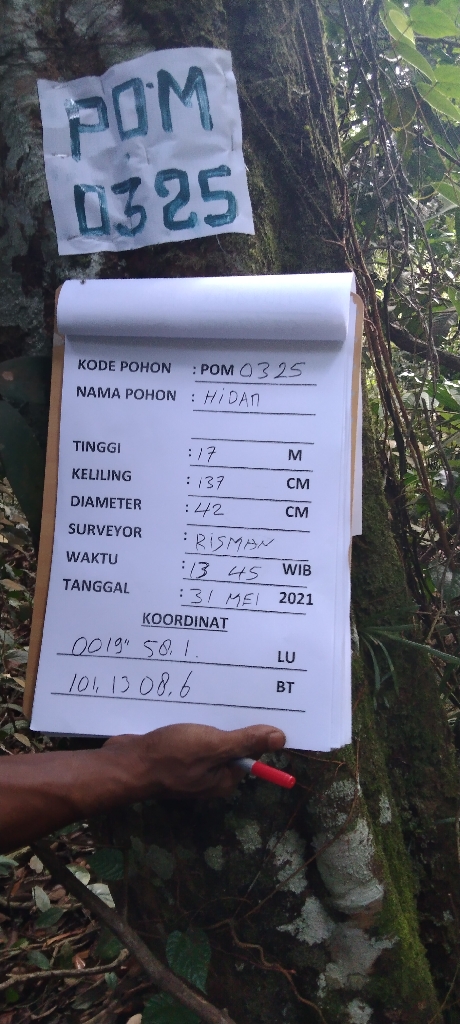 POM
0325
KODE POHON : POM 0325
NAMA POHON : HiDAN
TINGGI : 17 M
KELILING : 137 CM
DIAMETER : 42 CM
SURVEYOR : RISMAN
WAKTU : 13 45 WIB
TANGGAL : 31 MEI 2021
KOORDINAT
0019" 58.1. LU
101, 13 08.6 BT